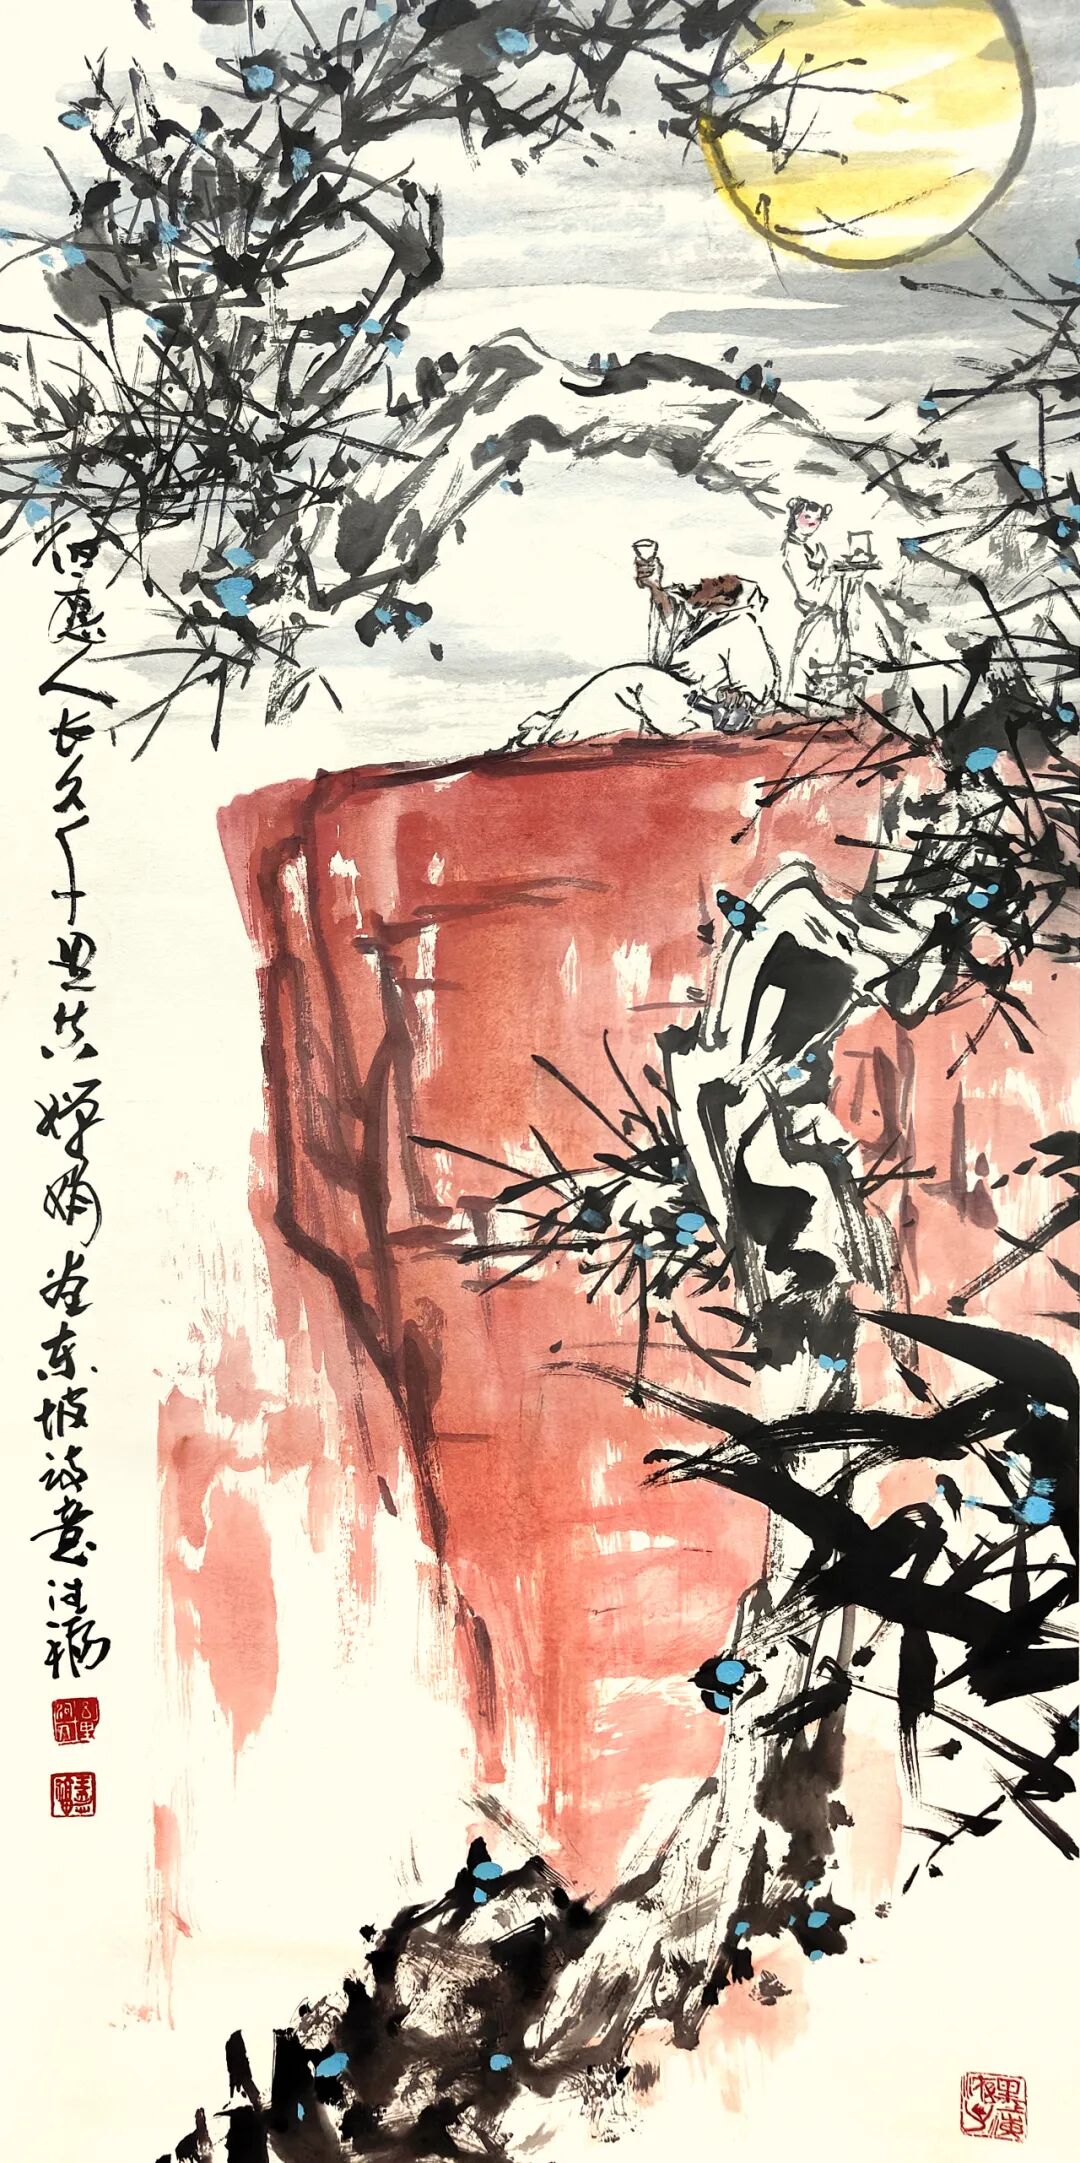 但愿人长久千里共婵娟东坡诗意